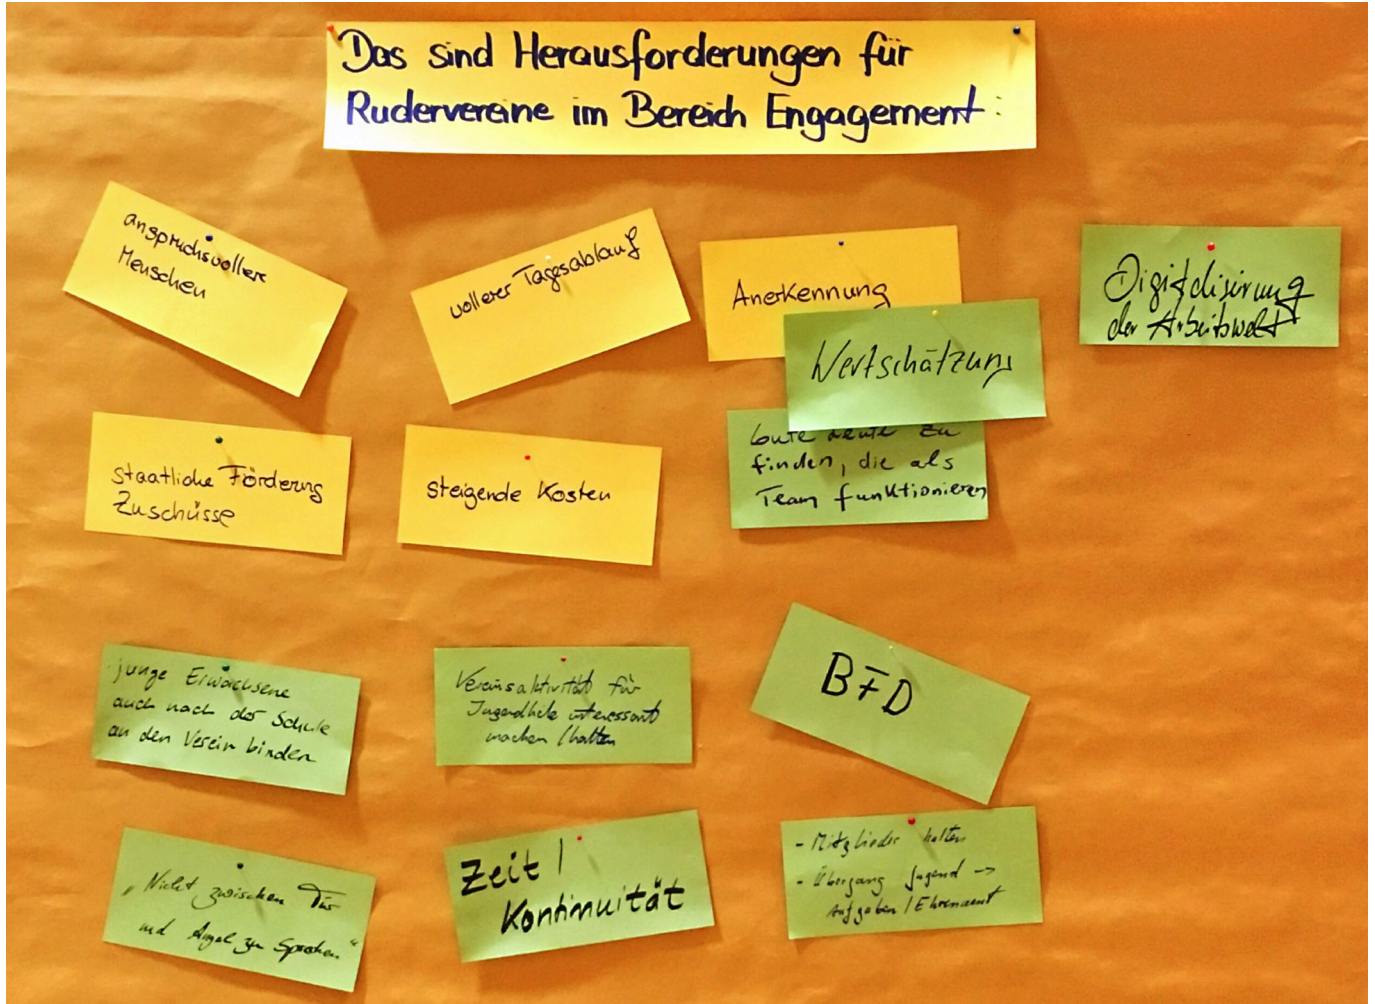 Das sind Herausforderungen für
Rudervereine im Bereich Engagement:
anspruchsvollere
Menschen
vollerer Tagesablauf
Anerkennung
Wertschätzung
Digitalisirung
der Arbeitswelt
staatliche Förderung
Zuschüsse
steigende Kosten
Leute zu
finden, die als
Team funktionieren
junge Erwachsene
auch nach der Schule
an den Verein binden
Vereinsaktivität für
Jugendliche interessant
machen / halten
BFD
"Nicht zwischen Tür
und Angel zu sprechen"
Zeit /
Kontinuität
- Mitglieder halten
- Übergang Jugend ->
Aufgaben / Ehrenamt